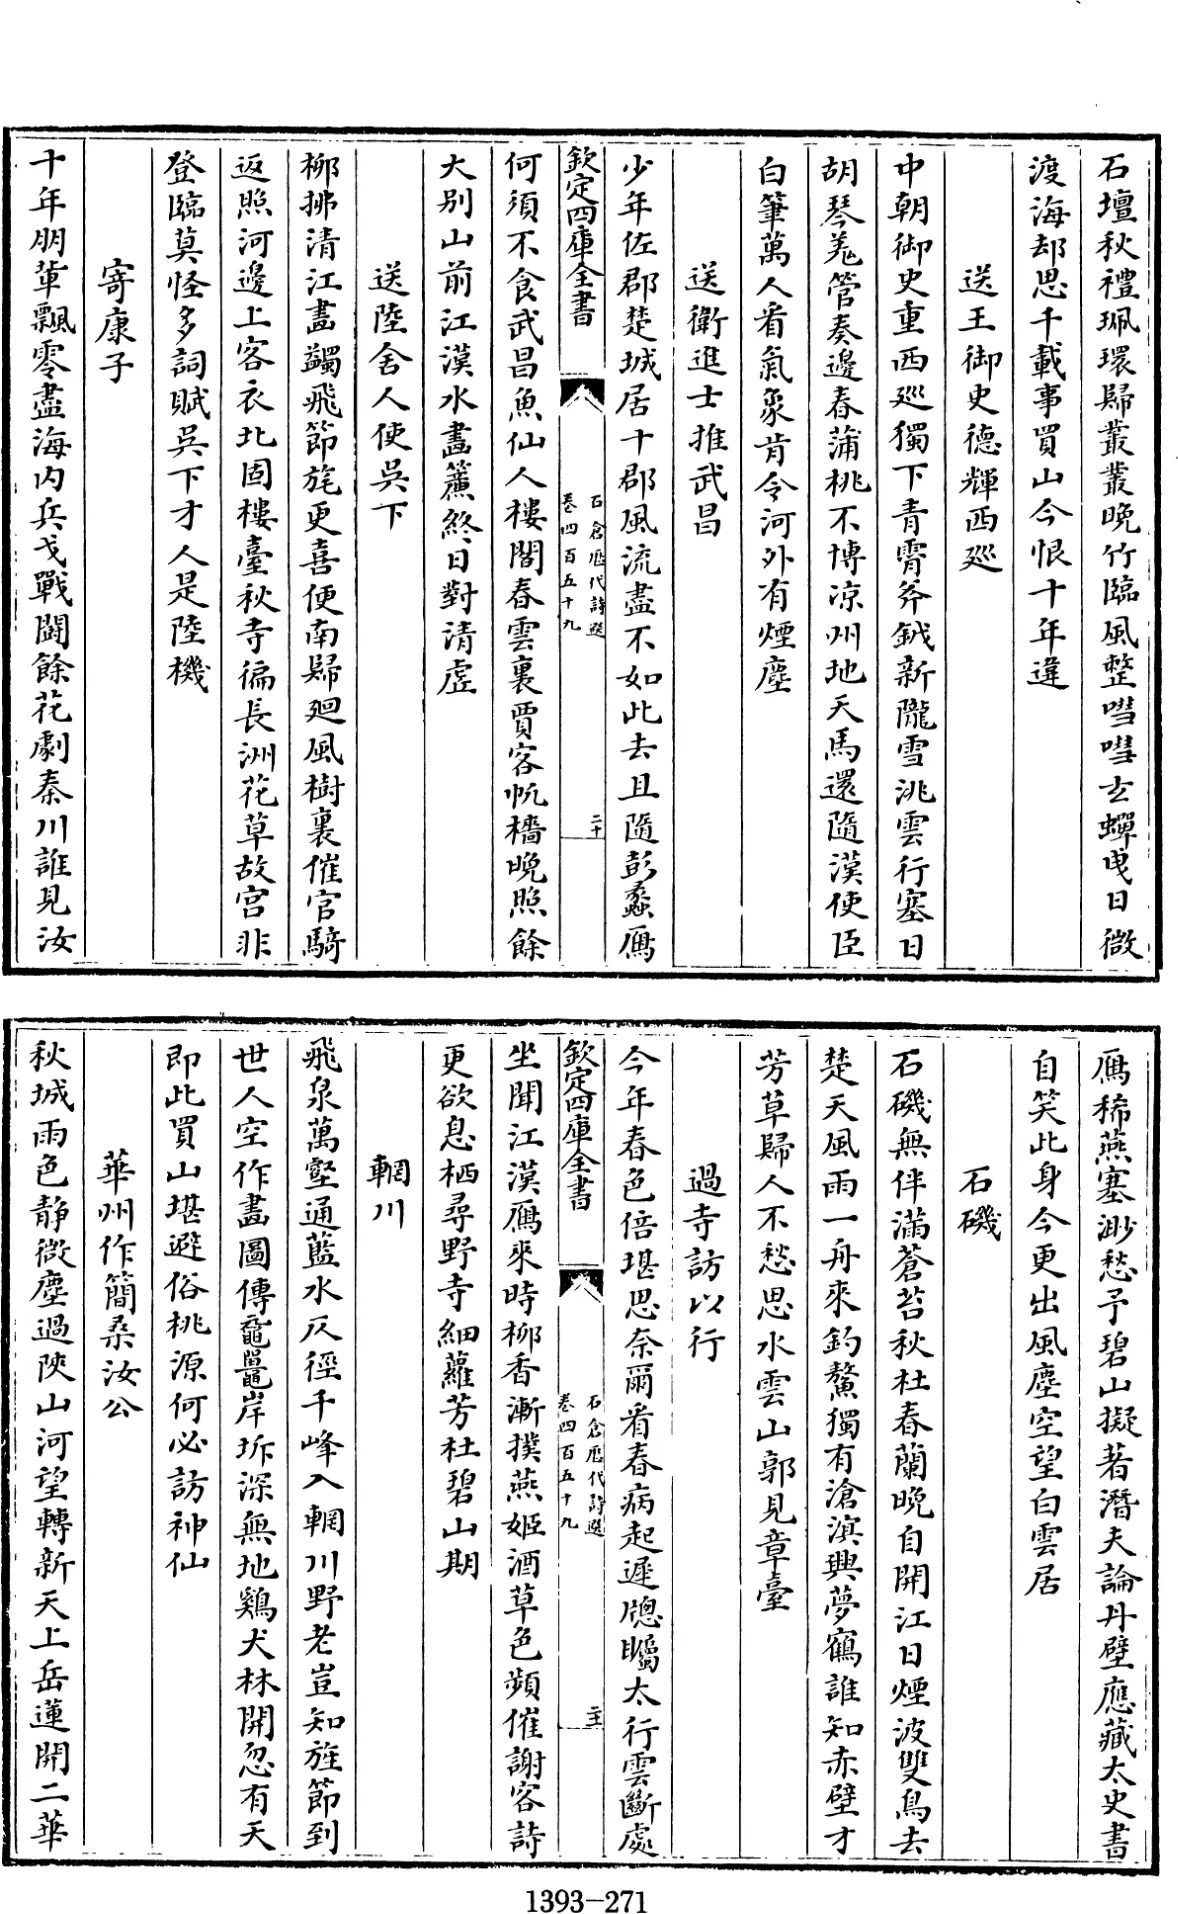 石壇秋禮珮環歸叢叢晚竹臨風整嘒嘒玄蟬曵日微
渡海却思千載事買山今恨十年違
送王御史德輝西廵
中朝御史重西廵獨下青霄斧鉞新隴雪洮雲行塞日
胡琴羗管奏邊春蒲桃不博凉州地天馬還隨漢使臣
白筆萬人看氣象肯令河外有煙塵
送衛進士推武昌
少年佐郡楚城居十郡風流盡不如此去且隨彭蠡鴈
欽定四庫全書
石倉歷代詩選
卷四百五十九
二十
何須不食武昌魚仙人樓閣春雲裏賈客帆檣晚照餘
大别山前江漢水畫簾終日對清虛
送陸舍人使吳下
柳拂清江畫鷁飛節旄更喜便南歸廻風樹裏催官騎
返照河邊上客衣北固樓臺秋寺徧長洲花草故宫非
登臨莫怪多詞賦吳下才人是陸機
寄康子
十年朋軰飄零盡海内兵戈戰鬪餘花劇秦川誰見汝
鴈稀燕塞渺愁予碧山擬著潛夫論丹壁應藏太史書
自笑此身今更出風塵空望白雲居
石磯
石磯無伴滿蒼苔秋杜春蘭晚自開江日煙波雙鳥去
楚天風雨一舟來釣鰲獨有滄溟興夢鶴誰知赤壁才
芳草歸人不愁思水雲山郭見章臺
過寺訪以行
今年春色倍堪思奈爾看春病起遲牕矚太行雲斷處
欽定四庫全書
石倉歷代詩選
卷四百五十九
二十一
坐聞江漢鴈來時柳香漸撲燕姬酒草色頻催謝客詩
更欲息栖尋野寺細蘿芳杜碧山期
輞川
飛泉萬壑通藍水仄徑千峰入輞川野老豈知旌節到
世人空作畫圖傳黿鼉岸坼深無地鷄犬林開忽有天
即此買山堪避俗桃源何必訪神仙
華州作簡桑汝公
秋城雨色静微塵過陜山河望轉新天上岳蓮開二華
1393-271